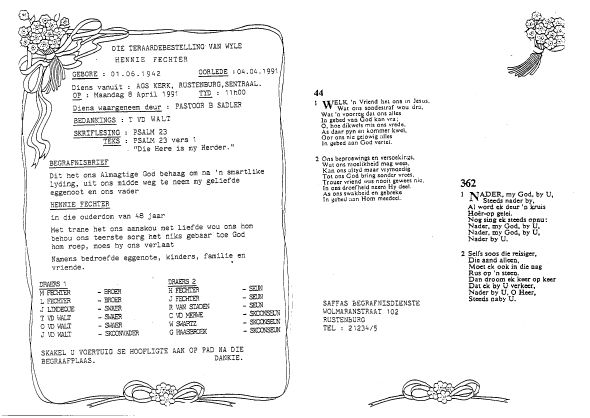 DIE TERAARDEBESTELLING VAN WYLE
HENNIE FECHTER
GEBORE : 01.06.1942 OORLEDE :04.04.1991
Diens vanuit : AGS KERK, RUSTENBURG,SENTRAAL.
OP : Maandag 8 April 1991 TYD : 11h00
Diens waargeneem deur : PASTOOR B SADLER
BEDANKINGS : T VD WALT
SKRIFLESING : PSALM 23
TEKS : PSALM 23 vers 1
"Die Here is my Herder."
BEGRAFNISBRIEF
Dit het ons Almagtige God behaag om na 'n smartlike
lyding, uit ons midde weg te neem my geliefde
eggenoot en ons vader
HENNIE FECHTER
in die ouderdom van 48 jaar
Met trane het ons aanskou met liefde wou ons hom
behou ons teerste sorg het niks gebaar toe God
hom roep, moes hy ons verlaat
Namens bedroefde eggenote, kinders, familie en
vriende.
DRAERS 1 DRAERS 2
M FECHTER - BROER H FECHTER - SEUN
L FECHTER - BROER J FECHTER - SEUN
J LINDEQUE - SWAER R VAN STADEN - SEUN
T VD WALT - SWAER C VD MERWE - SKOONSEUN
O VD WALT - SWAER W SWARTZ - SKOONSEUN
J VD WALT - SKOONVADER G MAASBROEK - SKOONSEUN
SKAKEL U VOERTUIG SE HOOFLIGTE AAN OP PAD NA DIE
BEGRAAFPLAAS. DANKIE.
44
1 WELK 'n Vriend het ons in Jesus,
Wat ons sondestraf wou dra,
Wat 'n voorreg dat ons alles
In gebed van God kan vra;
O, hoe dikwels mis ons vrede,
As daar pyn en kommer kwel,
Oor ons nie gelowig alles
In gebed aan God vertel.
2 Ons beproewings en versoekings,
Wat ons moeilikheid mag wees,
Kan ons altyd maar vrymoedig
Tot ons God bring sonder vrees.
Trouer vriend was nooit gewees nie,
In ons droefheid neem Hy deel.
As ons swakheid en gebreke
In gebed aan Hom meedeel.
SAFFAS BEGRAFNISDIENSTE
WOLMARANSTRAAT 102
RUSTENBURG
TEL : 21234/5
362
1 NADER, my God, by U,
Steeds nader by,
Al word ek deur 'n kruis
Hoër-op gelei.
Nog sing ek steeds opnu:
Nader, my God, by U,
Nader, my God, by U,
Nader by U.
2 Selfs soos die reisiger,
Die aand alleen,
Moet ek ook in die nag
Rus op 'n steen,
Dan droom ek keer op keer
Dat ek by U verkeer,
Nader by U, O Heer,
Steeds naby U.